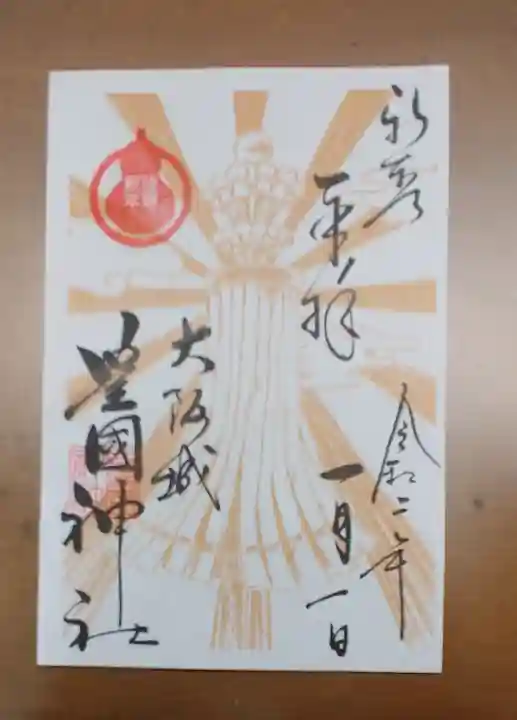 新春
奉拝
令和二年
一月一日
大阪城
豊國神社